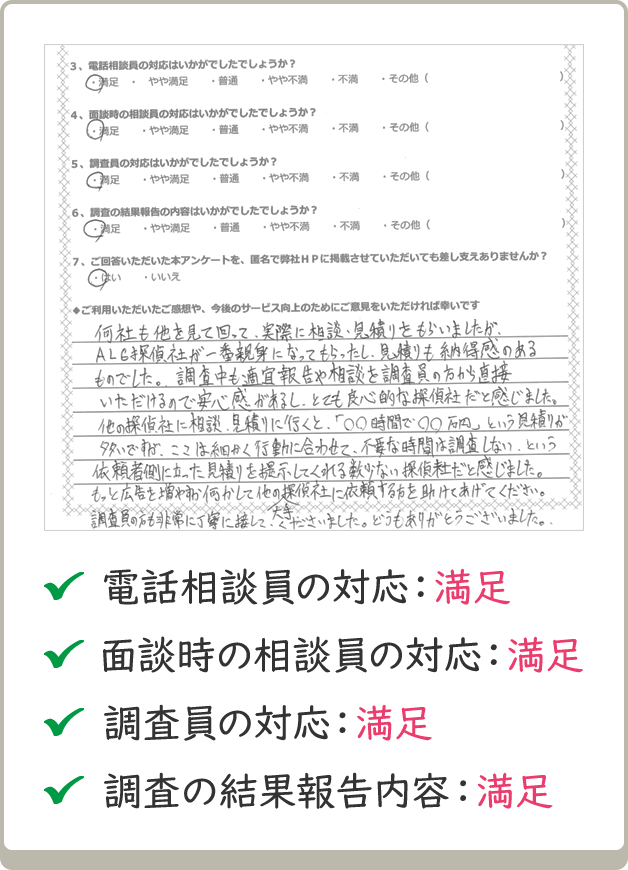 3、電話相談員の対応はいかがでしたでしょうか？
・満足 ・ やや満足 ・普通 ・やや不満 ・不満 ・その他（ ）
4、面談時の相談員の対応はいかがでしたでしょうか？
・満足 ・やや満足 ・普通 ・やや不満 ・不満 ・その他（ ）
5、調査員の対応はいかがでしたでしょうか？
・満足 ・やや満足 ・普通 ・やや不満 ・不満 ・その他（ ）
6、調査の結果報告の内容はいかがでしたでしょうか？
・満足 ・やや満足 ・普通 ・やや不満 ・不満 ・その他（ ）
7、ご回答いただいた本アンケートを、匿名で弊社ＨＰに掲載させていただいても差し支えありませんか？
・はい ・いいえ
◆ご利用いただいたご感想や、今後のサービス向上のためにご意見をいただければ幸いです
何社も他を見て回って、実際に相談、見積りをもらいましたが、
ALG探偵社が一番親身になってもらったし、見積りも納得感のある
ものでした。調査中も適宜報告や相談を調査員の方から直接
いただけるので安心感があるし、とても良心的な探偵社だと感じました。
他の探偵社に相談、見積りに行くと、「〇〇時間で〇〇万円」という見積りが
多いですが、ここは細かく行動に合わせて、不要な時間は調査しない、という
依頼者側に立った見積りを提示してくれる数少ない探偵社だと感じました。
もっと広告を増やすか何かして他の大手探偵社に依頼する方を助けてあげてください。
調査員の方も非常に丁寧に接してくださいました。どうもありがとうございました。
電話相談員の対応：満足
面談時の相談員の対応：満足
調査員の対応：満足
調査の結果報告内容：満足